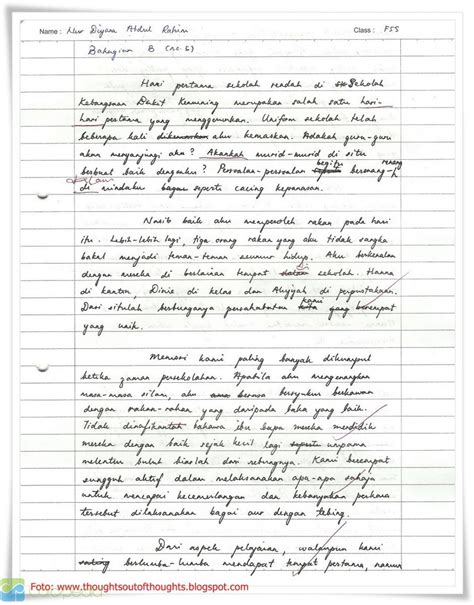 Name : Nur Diyana Abdul Rahim Class : F5S
Bahagian B (no.5)
Hari pertama sekolah rendah di Sekolah
Kebangsaan Bukit Kemuning merupakan salah satu hari-
hari pertama yang menggerunkan. Uniform sekolah telah
beberapa kali aku kemaskan. Adakah guru-guru
akan menyayangi aku? Akankah murid-murid di situ
berbuat baik denganku? Persoalan-persoalan begitu berenang-renang
di mindaku bagai seperti cacing kepanasan.
Nasib baik aku memperoleh rakan pada hari
itu. Lebih-lebih lagi, tiga orang rakan yang aku tidak sangka
bakal menjadi teman-teman seumur hidup. Aku berkenalan
dengan mereka di berlainan tempat di sekolah. Hanna
di kantin, Dinie di kelas dan Aliyyah di perpustakaan.
Dari situlah berbunganya persahabatan kami yang berempat
yang unik.
Memori kami paling banyak dikumpul
ketika zaman persekolahan. Apabila aku mengenangkan
masa-masa silam, aku berasa bersyukur berkawan
dengan rakan-rakan yang daripada baka yang baik.
Tidak dinafikan bahawa ibu bapa mereka mendidik
mereka dengan baik sejak kecil lagi umpama
melentur buluh biarlah dari rebungnya. Kami berempat
sungguh aktif dalam melaksanakan apa-apa sahaja
untuk mencapai kecemerlangan dan kebanyakan perkara
tersebut dilaksanakan bagai aur dengan tebing.
Dari aspek pelajaran, walaupun kami
berlumba-lumba mendapat tempat pertama, namun
Foto: www.thoughtsoutofthoughts.blogspot.com